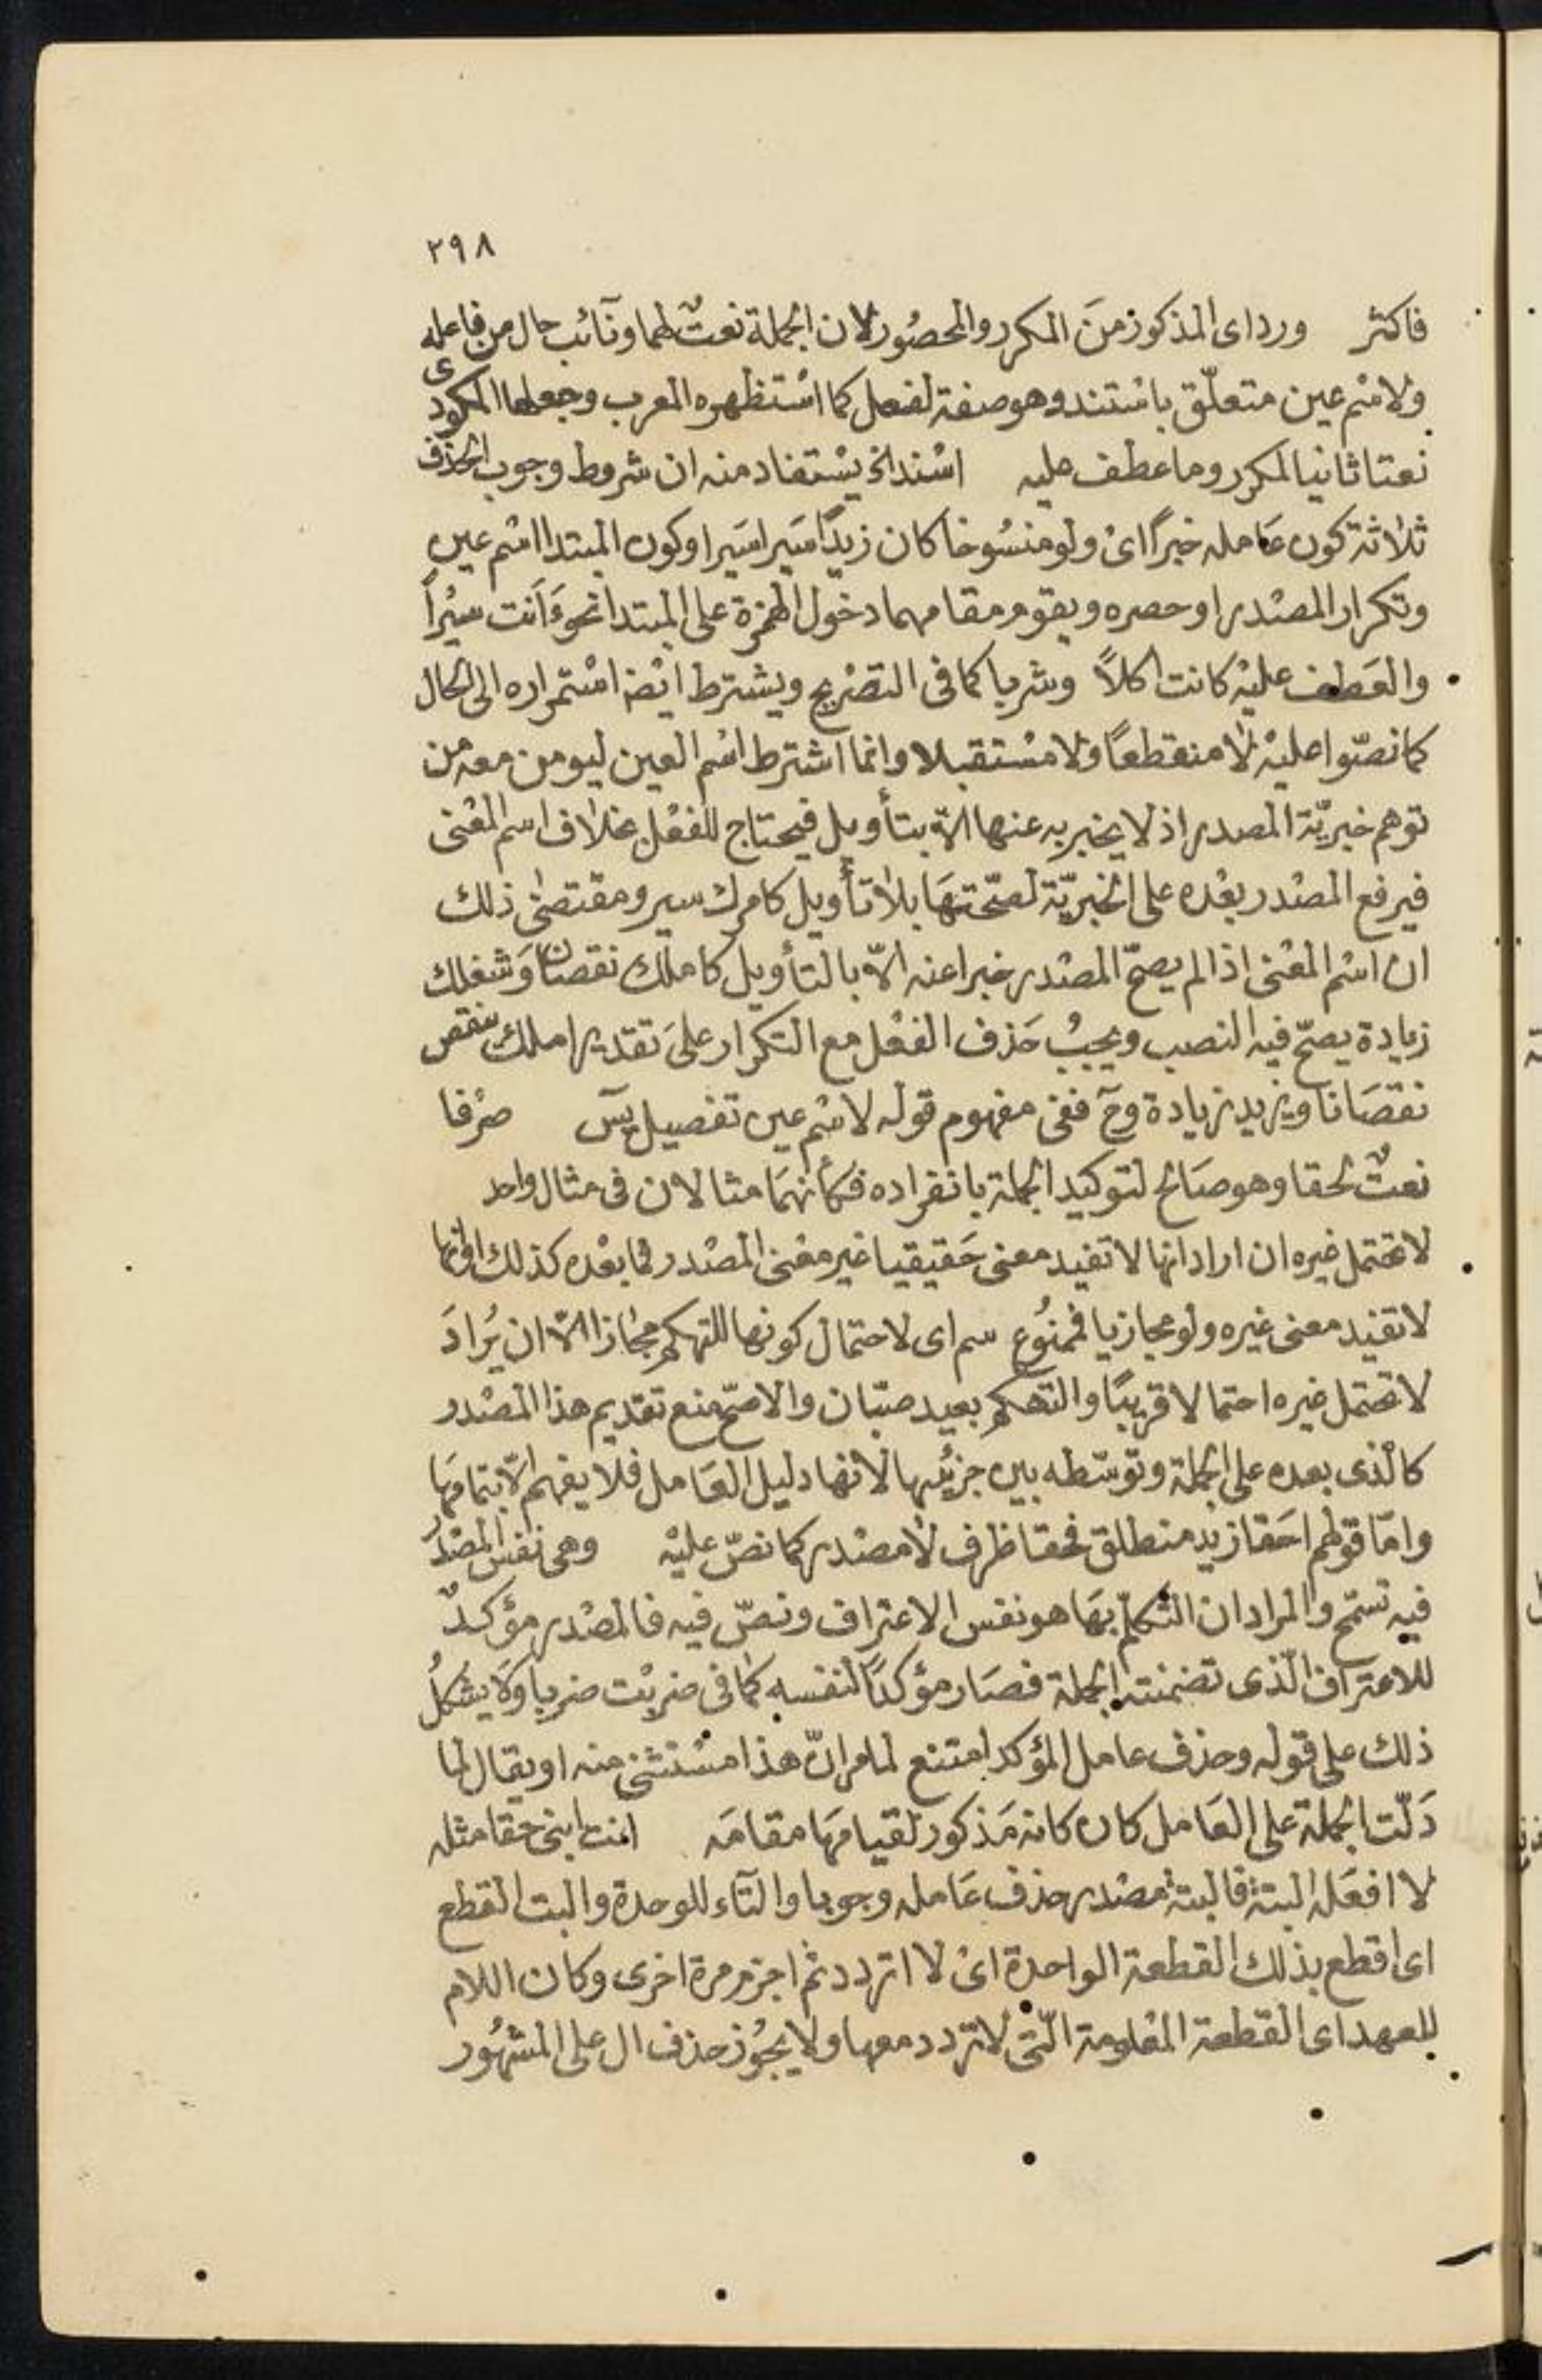 ٢٩٨
فاكثر ورد اى المذكور من المكرر والمحصور لان الجملة نعت لهما ونائب حال من فاعله
ولاسم عين متعلّق باستند وهو صفة لفعل كما استظهره المعرب وجعلها المكودى
نعتا ثانيا لمكرر وما عطف عليه استند الخ يستفاد منه ان شروط وجوب الحذف
ثلاثة كون عامله خبرًا اى ولو منسوخا كان زيدًا سيرا سيرا وكون المبتدا اسم عين
وتكرار المصدر او حصره ويقوم مقامهما دخول الهمزة على المبتدا نحو ءَاَنت سيرًا
والعطف عليه كانت اكلاً وشربا كما فى التصريح ويشترط ايضا استمراره الى الحال
كما نصّوا عليه لا منقطعًا ولا مستقبلا وانما اشترط اسم العين ليومن معه من
توهم خبريّة المصدر اذ لا يخبر به عنها الاّ بتأويل فيحتاج للفعل بخلاف اسم المعنى
فيرفع المصدر بعده على الخبريّة لصحّتها بلا تأويل كامرك سير ومقتضى ذلك
ان اسم المعنى اذا لم يصحّ المصدر خبرا عنه الاّ بالتأويل كاملك نقصانًا وشغلك
زيادة يصحّ فيه النصب ويجب حذف الفعل مع التكرار على تقدير املك ينقص
نقصانا ويزيد زيادة وح ففى مفهوم قوله لاسم عين تفصيل يس صرفا
نعتٌ لحقا وهو صالح لتوكيد الجملة بانفراده فكأنهما مثالان فى مثال واحد
لا تحتمل غيره ان اراد انها لا تفيد معنى حقيقيا غير معنى المصدر فما بعده كذلك او انها
لا تفيد معنى غيره ولو مجازيا فممنوع سم اى لاحتمال كونها للتهكم مجازا الاّ ان يُرادَ
لا تحتمل غيره احتمالا قريبًا والتهكم بعيد صبّان والاصحّ منع تقديم هذا المصدر
كالذى بعده على الجملة وتوسّطه بين جزئيها لانها دليل العامل فلا يفهم الاّ بتمامها
وامّا قولهم احقا زيد منطلق فحقا ظرف لا مصدر كما نصّ عليه وهى نفس المصدر
فيه تسمّح والمراد ان التكلّم بها هو نفس الاعتراف ونصّ فيه فالمصدر مؤكدٌ
للاعتراف الّذى تضمنته الجملة فصار مؤكدًا لنفسه كما فى ضربت ضربا ولا يشكلُ
ذلك على قوله وحذف عامل المؤكد امتنع لما مر انّ هذا مستثنى منه او يقال لما
دَلّت الجملة على العامل كان كانه مَذكور لقيامها مقامه انت ابنى حقا مثله
لا افعله البتة فالبتة مصدر حذف عامله وجوبا والتآء للوحدة والبت القطع
اى اقطع بذلك القطعة الواحدة اى لا اتردد ثم اجزم مرة اخرى وكان اللام
للعهد اى القطعة المعلومة الّتى لا تردد معها ولا يجوز حذف ال على المشهور